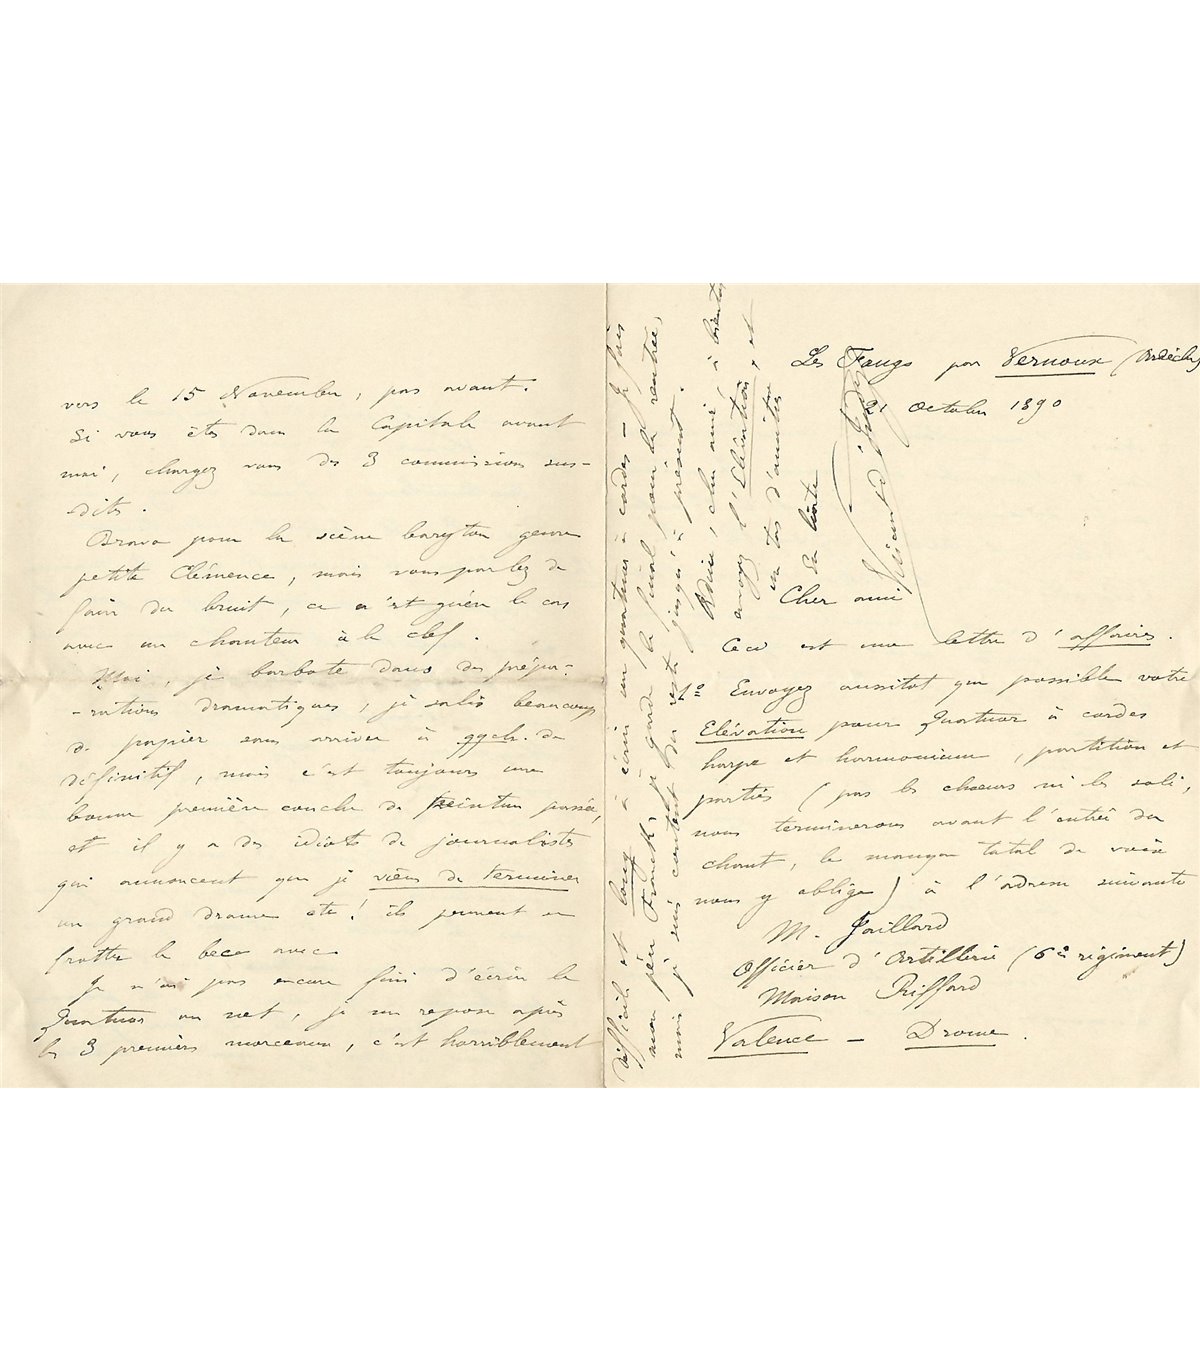 Les Faugs par Vernoux (Ardèche)
21 Octobre 1890
Cher ami
Ceci est une lettre d'affaires.
1º Envoyez aussitot que possible votre
Elévation pour Quatuor à cordes
harpe et harmonium, partition et
parties (pas les chœurs ni les soli,
nous terminerons avant l'entrée du
chant, le manque total de voix
nous y oblige) à l'adresse suivante
M. Jaillard
Officier d'Artillerie (6e régiment)
Maison Riffard
Valence – Drome.
vers le 15 Novembre, pas avant.
Si vous êtes dans la Capitale avant
moi, chargez vous des 3 commissions sus-
dites.
Bravo pour la scène baryton genre
petite Clémence, mais vous parlez de
faire du bruit, ce n'est guère le cas
avec un chanteur à la clef.
Moi, je barbote dans des prépa-
-rations dramatiques, je salis beaucoup
de papier sans arriver à qqch. de
définitif, mais c'est toujours une
bonne première couche de peinture passée,
et il y a des idiots de journalistes
qui annoncent que je viens de terminer
un grand drame etc! ils peuvent se
frotter le bec avec
Je n'ai pas encore fini d'écrire le
Quatuor au net, je me repose après
les 3 premiers morceaux, c'est horriblement
difficile et long à écrire un quatuor à cordes – Je fais
mon père Franck, je garde le final pour la rentrée,
mais je suis content du reste jusqu'à présent.
Adieu, cher ami, à bientôt
envoyez l'Elévation, et
un tas d'amitiés
en hâte
Vincent d'Indy